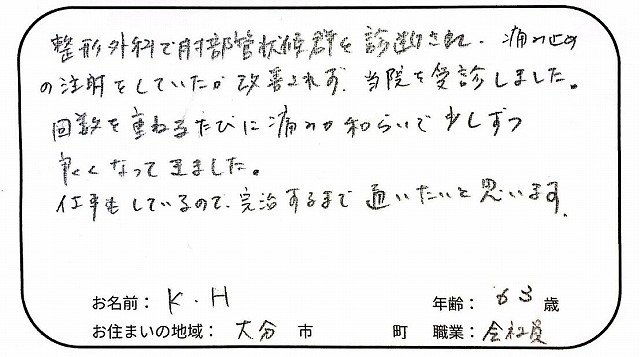 整形外科で肘部管状候群と診断され、痛み止め
の注射をしていたが改善されず、当院を受診しました。
回数を重ねるたびに痛みが和らいで少しずつ
良くなって来ました。
仕事もしているので、完治するまで通いたいと思います。
お名前： K.H 年齢： 63 歳
お住まいの地域： 大分 市 町 職業： 会社員